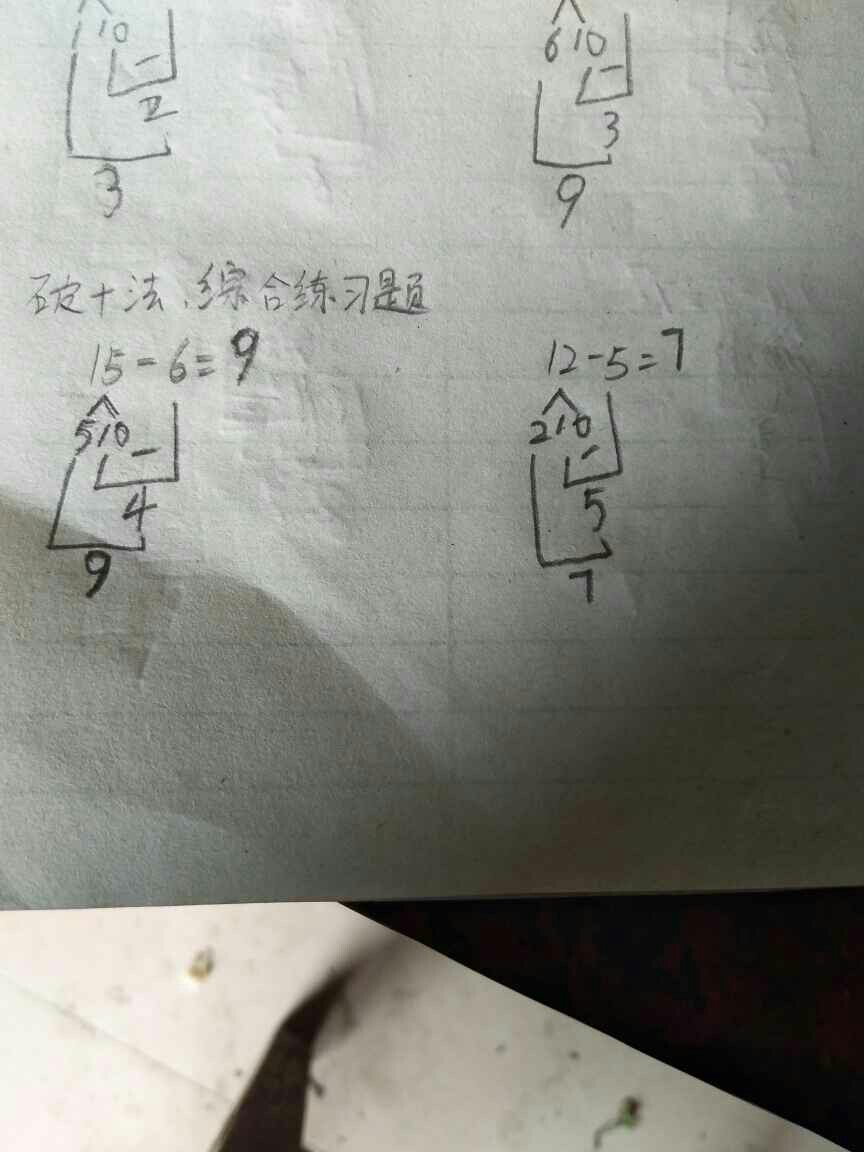 1 10 6 10
- -
2 3
3 9
破十法、综合练习题
15-6=9 12-5=7
5 10 2 10
- -
4 5
9 7